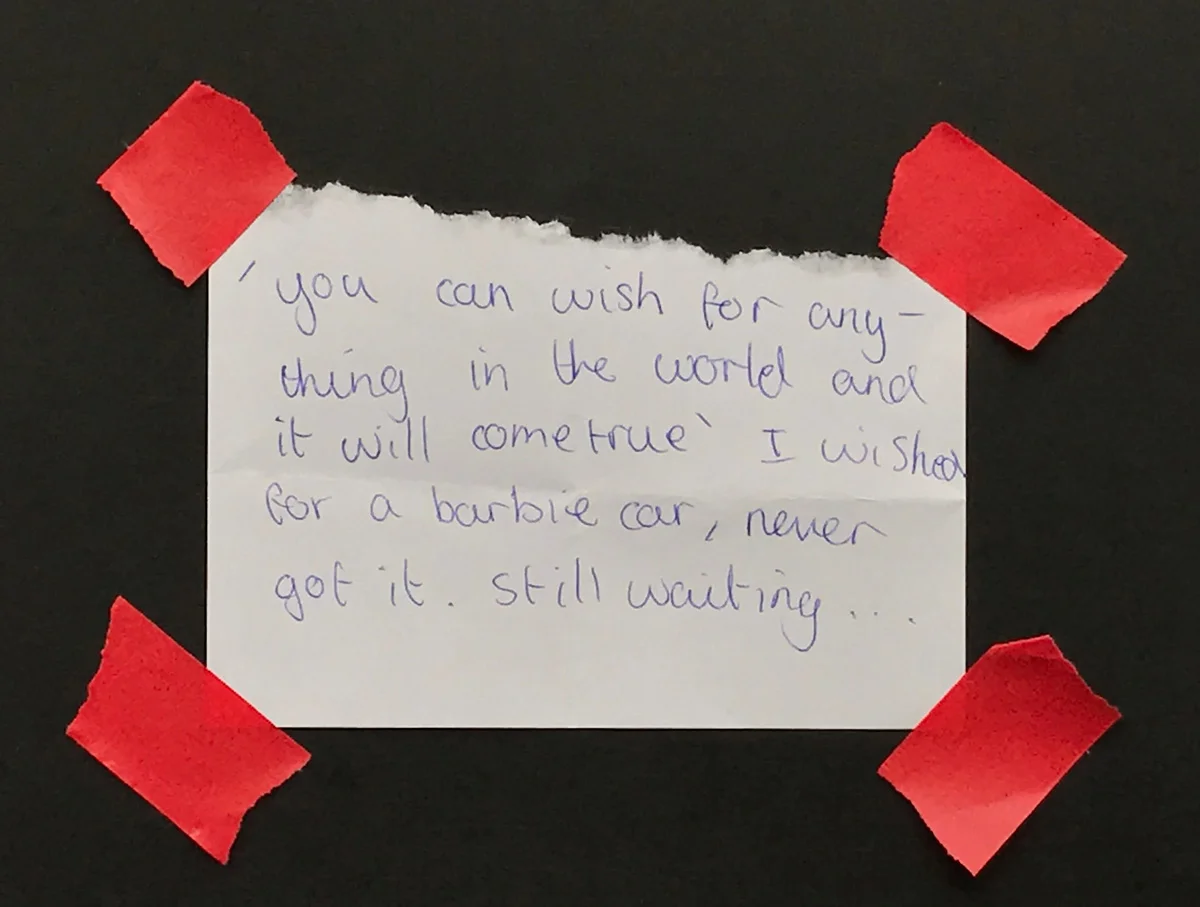 'you can wish for any-
thing in the world and
it will come true` I wished
for a barbie car, never
got it. still waiting....